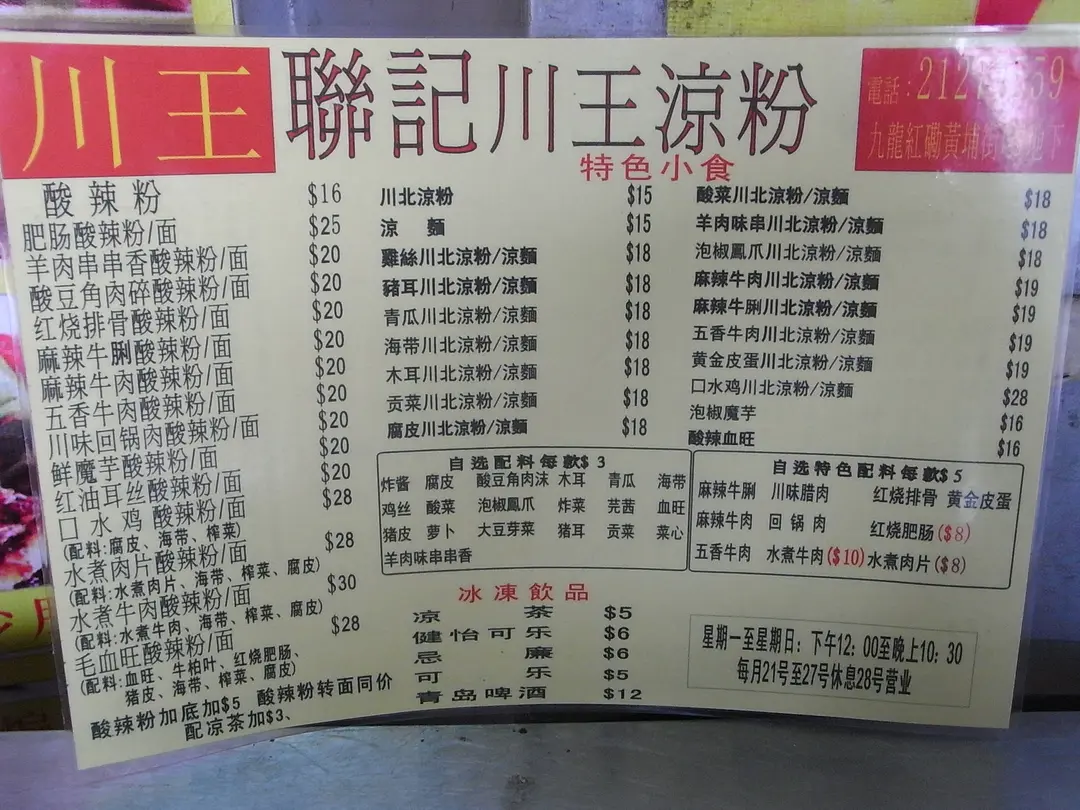 川王
聯記川王涼粉
特色小食
電話：
九龍紅磡黃埔街
酸辣粉 $16
肥肠酸辣粉/面 $25
羊肉串串香酸辣粉/面 $20
酸豆角肉碎酸辣粉/面 $20
红烧排骨酸辣粉/面 $20
麻辣牛脷酸辣粉/面 $20
麻辣牛肉酸辣粉/面 $20
五香牛肉酸辣粉/面 $20
川味回锅肉酸辣粉/面 $20
鲜魔芋酸辣粉/面 $20
红油耳丝酸辣粉/面 $20
口水鸡酸辣粉 $28
(配料:腐皮、海带、榨菜)
水煮肉片酸辣粉/面 $28
(配料:水煮肉片、海带、榨菜、腐皮)
水煮牛肉酸辣粉/面 $30
(配料:水煮牛肉、海带、榨菜、腐皮)
毛血旺酸辣粉/面 $28
(配料:血旺、牛柏叶、红烧肥肠、
猪皮、海带、榨菜、腐皮)
酸辣粉加底加$5 酸辣粉转面同价
配凉茶加$3、
川北涼粉 $15
涼 麵 $15
雞絲川北涼粉/涼麵 $18
豬耳川北涼粉/涼麵 $18
青瓜川北涼粉/涼麵 $18
海带川北涼粉/涼麵 $18
木耳川北涼粉/涼麵 $18
贡菜川北涼粉/涼麵 $18
腐皮川北涼粉/涼麵 $18
酸菜川北涼粉/涼麵 $18
羊肉味串川北涼粉/涼麵 $18
泡椒鳳爪川北涼粉/涼麵 $18
麻辣牛肉川北涼粉/涼麵 $19
麻辣牛脷川北涼粉/涼麵 $19
五香牛肉川北涼粉/涼麵 $19
黄金皮蛋川北涼粉/涼麵 $19
口水鸡川北涼粉/涼麵 $28
泡椒魔芋 $16
酸辣血旺 $16
自选配料每款$3
炸酱 腐皮 酸豆角肉沫 木耳 青瓜 海带
鸡丝 酸菜 泡椒鳳爪 炸菜 芫茜 血旺
猪皮 萝卜 大豆芽菜 猪耳 贡菜 菜心
羊肉味串串香
自选特色配料每款$5
麻辣牛脷 川味腊肉 红烧排骨 黄金皮蛋
麻辣牛肉 回锅肉 红烧肥肠($8)
五香牛肉 水煮牛肉($10) 水煮肉片($8)
冰凍飲品
凉茶 $5
健怡可乐 $6
忌廉 $6
可乐 $5
青岛啤酒 $12
星期一至星期日：下午12：00至晚上10：30
每月21号至27号休息28号营业